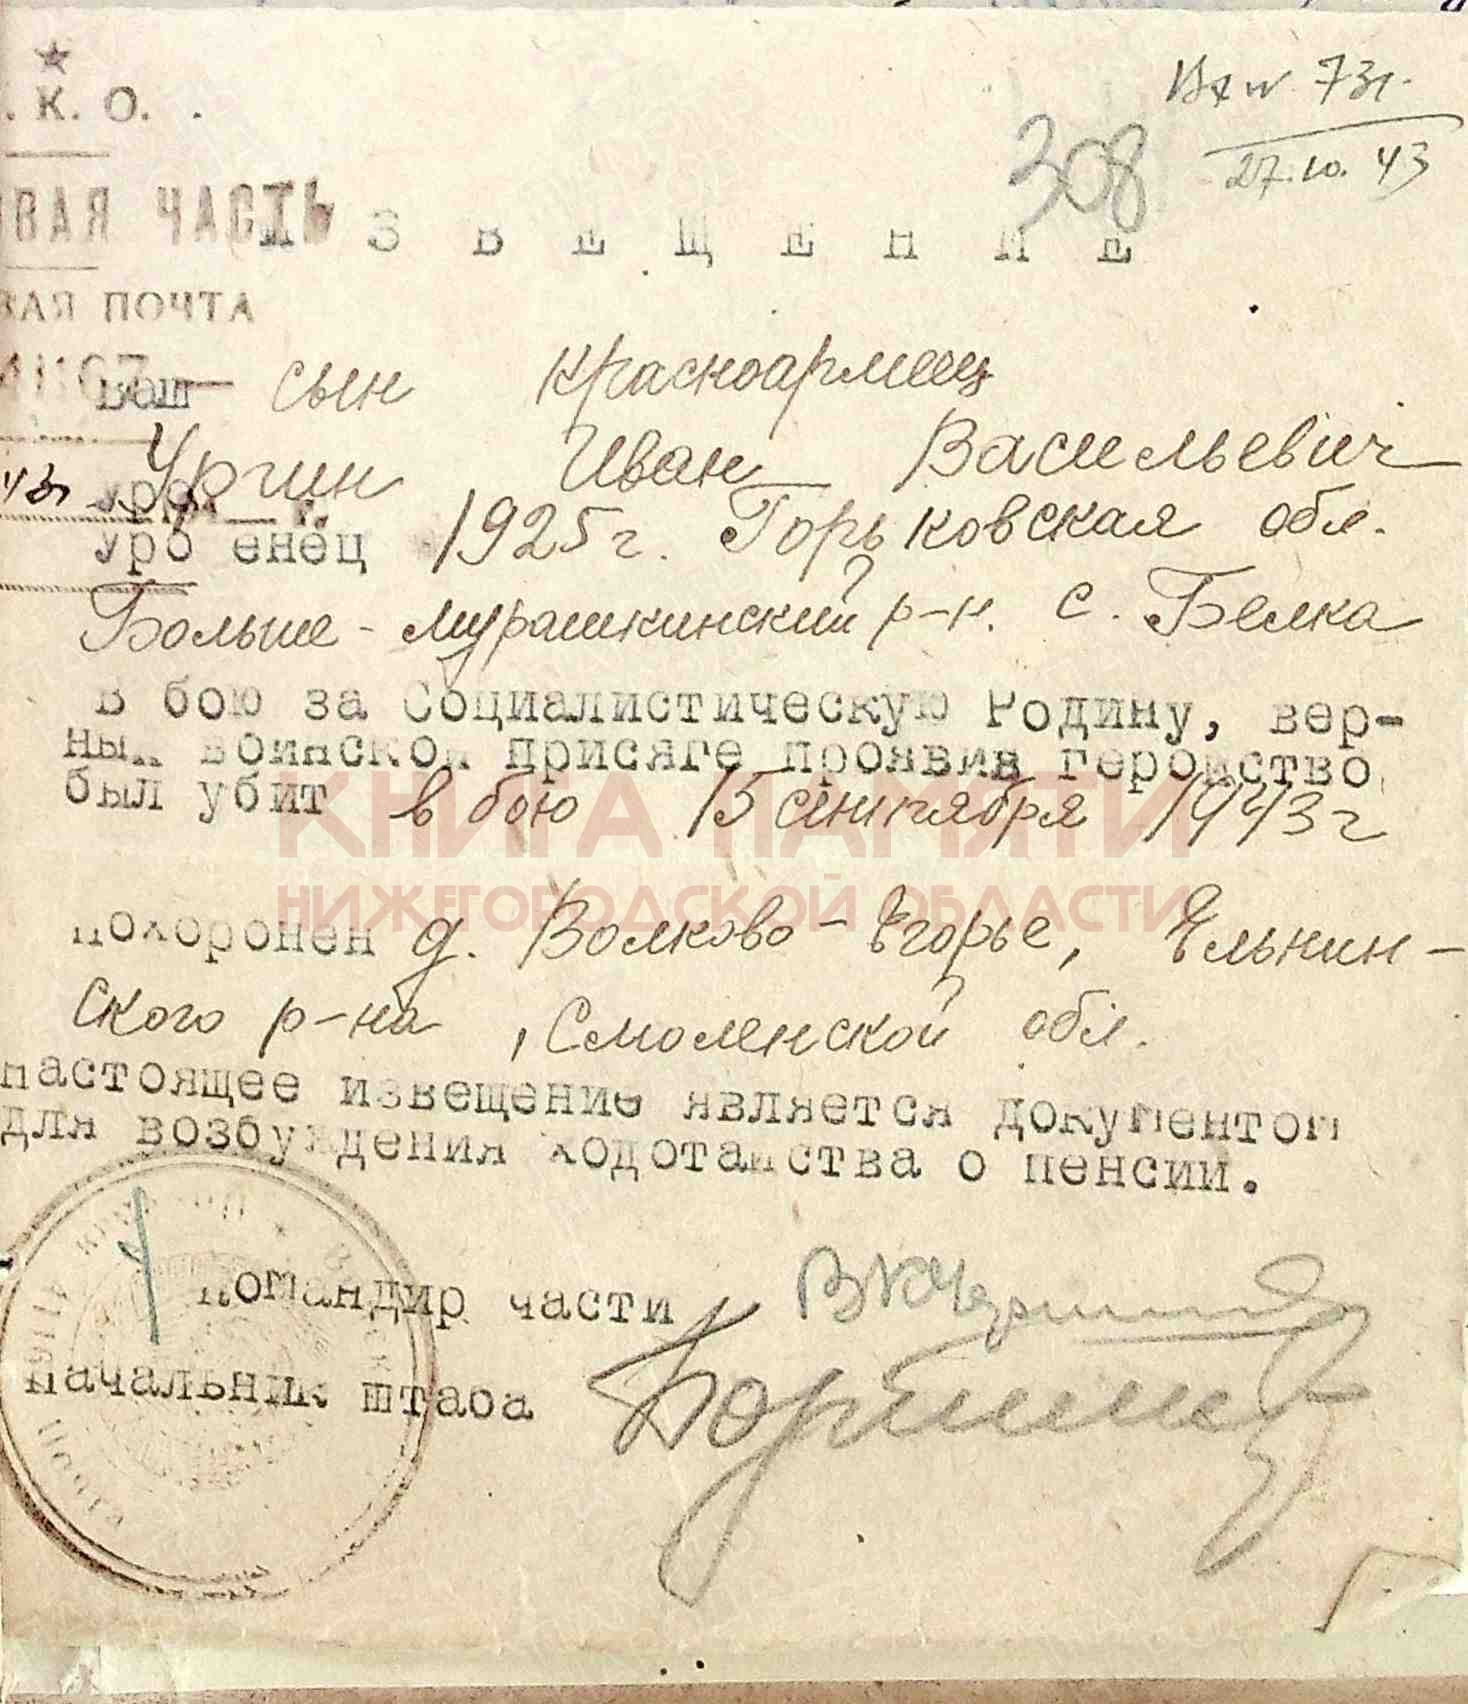 . К. О.
Вх № 731.
27.10.43
308
ВАЯ ЧАСТЬ
З В Е Щ Е Н И Е
ВАЯ ПОЧТА
Ваш сын красноармеец
Ургин Иван Васильевич
уроженец 1925 г. Горьковская обл.
Больше-Мурашкинский р-н. с. Белка
в бою за Социалистическую Родину, вер-
ный воинской присяге проявив геройство
был убит в бою 15 сентября 1943 г
КНИГА ПАМЯТИ
НИЖЕГОРОДСКОЙ ОБЛАСТИ
похоронен д. Волково-Егорье, Ельнин-
ского р-на, Смоленской обл.
настоящее извещение является документом
для возбуждения ходотайства о пенсии.
Командир части
Начальник штаба